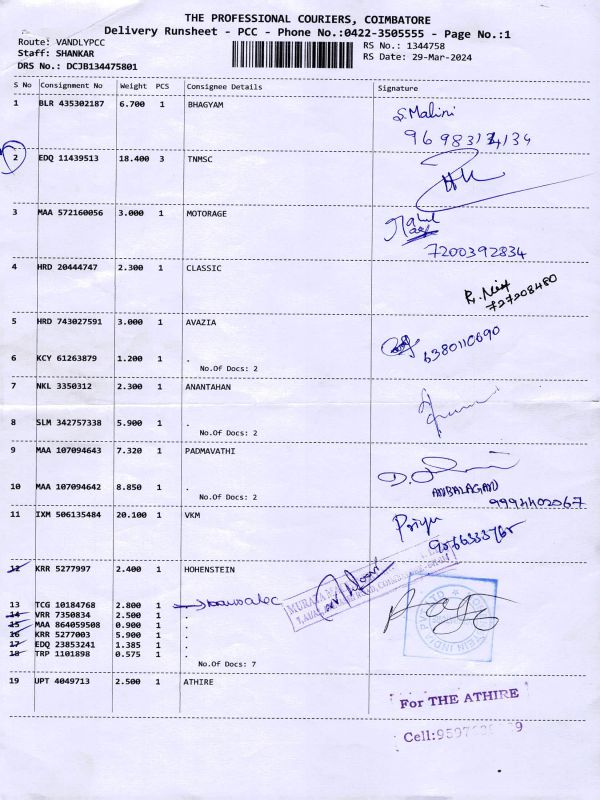 THE PROFESSIONAL COURIERS, COIMBATORE
Delivery Runsheet - PCC - Phone No.:0422-3505555 - Page No.:1
Route: VANDLYPCC
Staff: SHANKAR
DRS No.: DCJB134475801
RS No.: 1344758
RS Date: 29-Mar-2024
S No Consignment No Weight PCS Consignee Details Signature
1 BLR 435302187 6.700 1 BHAGYAM S. Malini
2 EDQ 11439513 18.400 3 TNMSC
3 MAA 572160056 3.000 1 MOTORAGE
7200392834
4 HRD 20444747 2.300 1 CLASSIC
727208480
5 HRD 743027591 3.000 1 AVAZIA 6380110690
6 KCY 61263879 1.200 1 .
No.Of Docs: 2
7 NKL 3350312 2.300 1 ANANTAHAN
8 SLM 342757338 5.900 1 .
No.Of Docs: 2
9 MAA 107094643 7.320 1 PADMAVATHI
10 MAA 107094642 8.850 1 . ANBALAGAN
No.Of Docs: 2 9994402067
11 IXM 506135484 20.100 1 VKM Priya
12 KRR 5277997 2.400 1 HOHENSTEIN
13 TCG 10184768 2.800 1
14 VRR 7350834 2.500 1 .
15 MAA 864059508 0.900 1 .
16 KRR 5277003 5.900 1 .
17 EDQ 23853241 1.385 1 .
18 TRP 1101898 0.575 1 .
No.Of Docs: 7
19 UPT 4049713 2.500 1 ATHIRE
For THE ATHIRE